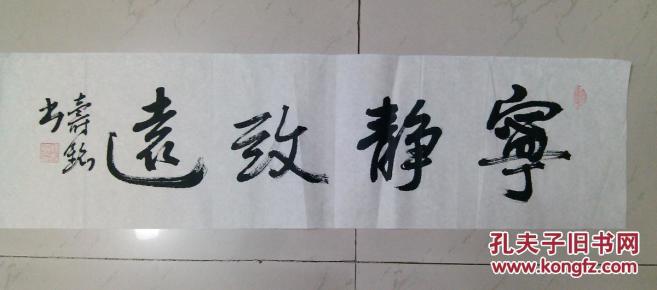 寧静致遠
壽銘
书
孔夫子旧书网
www.kongfz.com